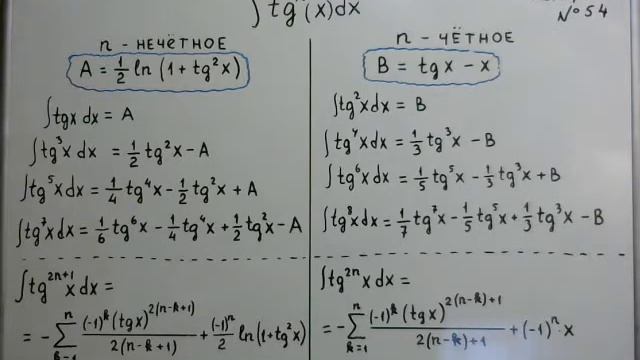 ∫tgⁿ(x)dx
№ 54
n - НЕЧЁТНОЕ
A = 1/2 ln (1 + tg²x)
∫tgx dx = A
∫tg³x dx = 1/2 tg²x - A
∫tg⁵x dx = 1/4 tg⁴x - 1/2 tg²x + A
∫tg⁷x dx = 1/6 tg⁶x - 1/4 tg⁴x + 1/2 tg²x - A
∫tg²ⁿ⁺¹x dx =
= - ∑ⁿₖ₌₁ (-1)ᵏ(tgx)²⁽ⁿ⁻ᵏ⁺¹⁾/2(n-k+1) + (-1)ⁿ/2 ln(1+tg²x)
n - ЧЁТНОЕ
B = tgx - x
∫tg²x dx = B
∫tg⁴x dx = 1/3 tg³x - B
∫tg⁶x dx = 1/5 tg⁵x - 1/3 tg³x + B
∫tg⁸x dx = 1/7 tg⁷x - 1/5 tg⁵x + 1/3 tg³x - B
∫tg²ⁿx dx =
= - ∑ⁿₖ₌₁ (-1)ᵏ(tgx)²⁽ⁿ⁻ᵏ⁾⁺¹/2(n-k)+1 + (-1)ⁿ x